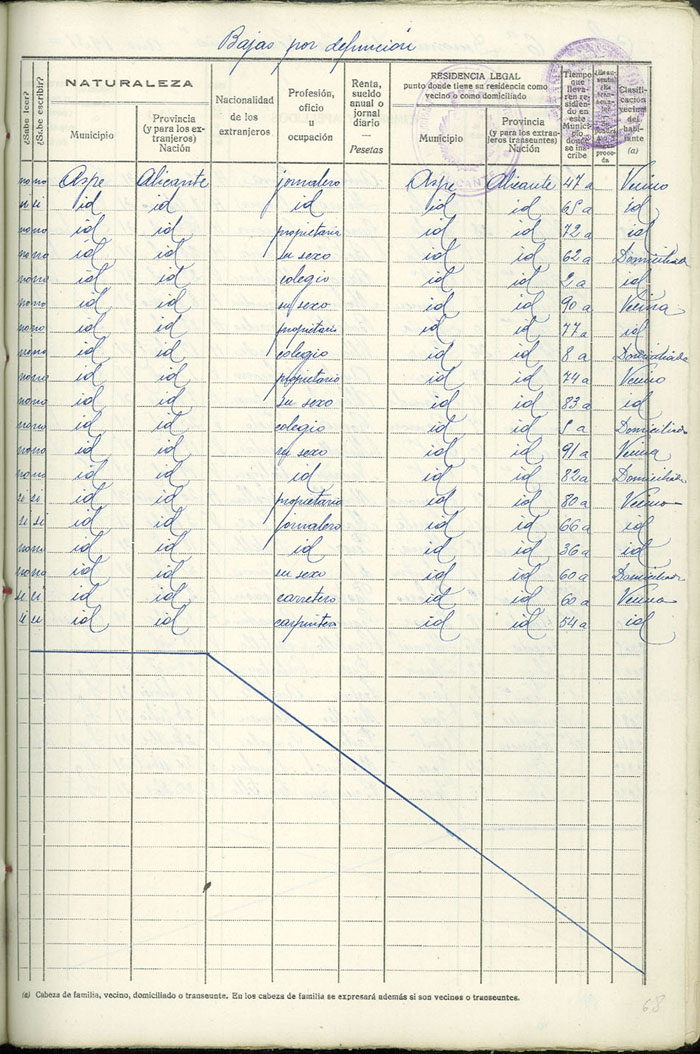 Bajas por defunción
¿Sabe leer?
¿Sabe escribir?
NATURALEZA
Municipio
Provincia (y para los extranjeros) Nación
Nacionalidad de los extranjeros
Profesión, oficio u ocupación
Renta, sueldo anual o jornal diario — Pesetas
RESIDENCIA LEGAL
punto donde tiene su residencia como vecino o como domiciliado
Municipio
Provincia (y para los extranjeros transeuntes) Nación
Tiempo que llevaren residiendo en este Municipio donde se inscribe
Clasificación vecinal del habitante (a)
no no Aspe Alicante jornalero Aspe Alicante 47 a Vecino
si si id id id id id 65 a id
no no id id propietaria id id 72 a id
no no id id su sexo id id 62 a Domiciliada
no no id id colegio id id 2 a id
no no id id su sexo id id 90 a Vecina
no no id id propietario id id 77 a id
no no id id colegio id id 8 a Domiciliada
no no id id propietario id id 74 a Vecino
no no id id su sexo id id 83 a id
no no id id colegio id id a Domiciliado
no no id id su sexo id id 91 a Vecina
no no id id id id id 82 a Domiciliada
si si id id propietario id id 80 a Vecino
si si id id jornalero id id 66 a id
no no id id id id id 36 a id
no no id id su sexo id id 60 a Domiciliada
si si id id carretero id id 60 a Vecino
si si id id carpintero id id 54 a id
(a) Cabeza de familia, vecino, domiciliado o transeunte. En los cabeza de familia se expresará además si son vecinos o transeuntes.
68